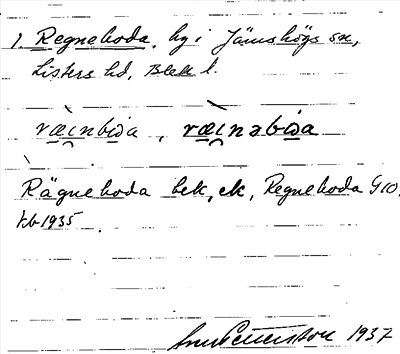 1. Regneboda, by i Jämshögs sn,
Listers hd, Blek l.
ræɩnbωa, ræɩnəbωa
Rägneboda bek, ek, Regneboda G10,
kb 1935
1937